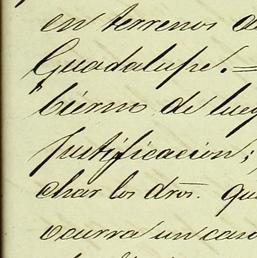 en terrenos de
Guadalupe.=
bierno de lueg
justificacion;
char los dros. qu
ocurra un caso